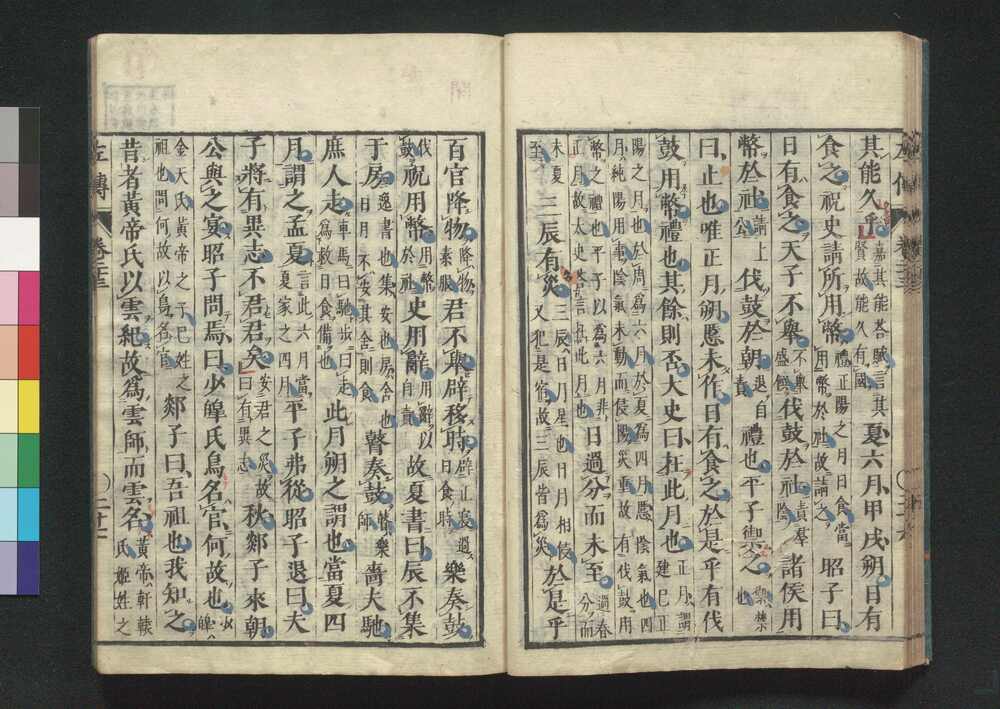 其能久乎嘉其能荅賦言其賢故能久有國夏六月甲戌朔日有
食之祝史請所用幣禮正陽之月日食當用幣於社故請之昭子曰
日有食之天子不舉不舉盛饌伐鼓於社責羣陰諸侯用
幣於社請上公伐鼓於朝退自責禮也平子禦之禦禁也
曰止也唯正月朔慝未作日有食之於是乎有伐
鼓用幣禮也其餘則否大史曰在此月也正月謂建巳正
陽之月也於周爲六月於夏爲四月慝陰氣也四月純陽用事陰氣未動而侵陽災重故有伐鼓用
幣之禮也平子以爲六月非正月故太史荅言在此月也日過分而未至過春分而
未夏至三辰有災三辰日月星也日月相侵又犯是宿故三辰皆爲災於是乎
百官降物降物素服君不舉辟移時辟正寢過日食時樂奏鼓
伐鼓祝用幣用幣於社史用辭用辭以自責故夏書曰辰不集
于房逸書也集安也房舍也日月不安其舍則食瞽奏鼓瞽樂師嗇夫馳
庶人走車馬曰馳步曰走爲救日食備也此月朔之謂也當夏四
月謂之孟夏言此六月當夏家之四月平子弗從昭子退曰夫
子將有異志不君君矣安君之災故曰有異志秋郯子來朝
公與之宴昭子問焉曰少皥氏鳥名官何故也少皥
金天氏黃帝之子己姓之祖也問何故以鳥名官郯子曰吾祖也我知之
昔者黃帝氏以雲紀故爲雲師而雲名黃帝軒轅氏姬姓之
左傳